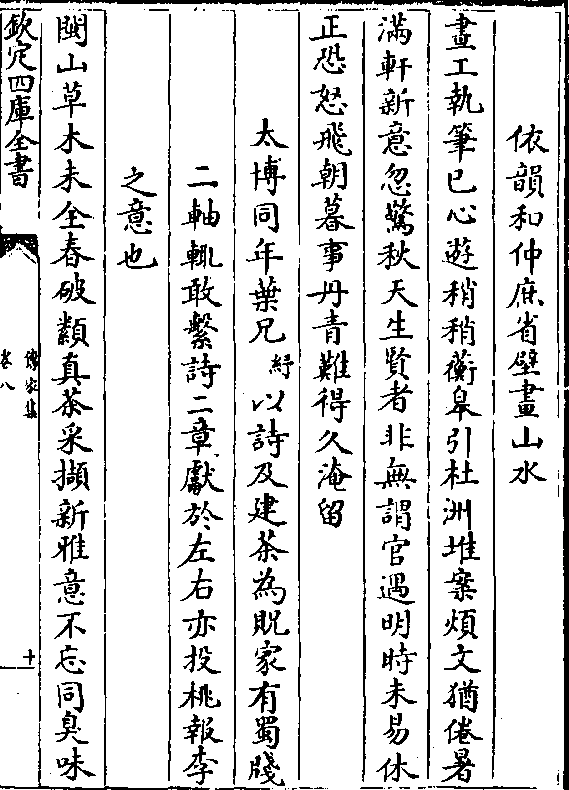 依韻和仲庶省壁畫山水
畫工執筆已心遊稍稍蘅臯引杜洲堆案煩文猶倦暑
滿軒新意忽驚秋天生賢者非無謂官遇明時未易休
正恐怒飛朝暮事丹青難得久淹留
太博同年葉兄紓以詩及建茶為貺家有蜀牋
二軸輒敢繫詩二章獻於左右亦投桃報李
之意也
閩山草木未全春破纇真茶采擷新雅意不忘同臭味
欽定四庫全書
傳家集
卷八
十